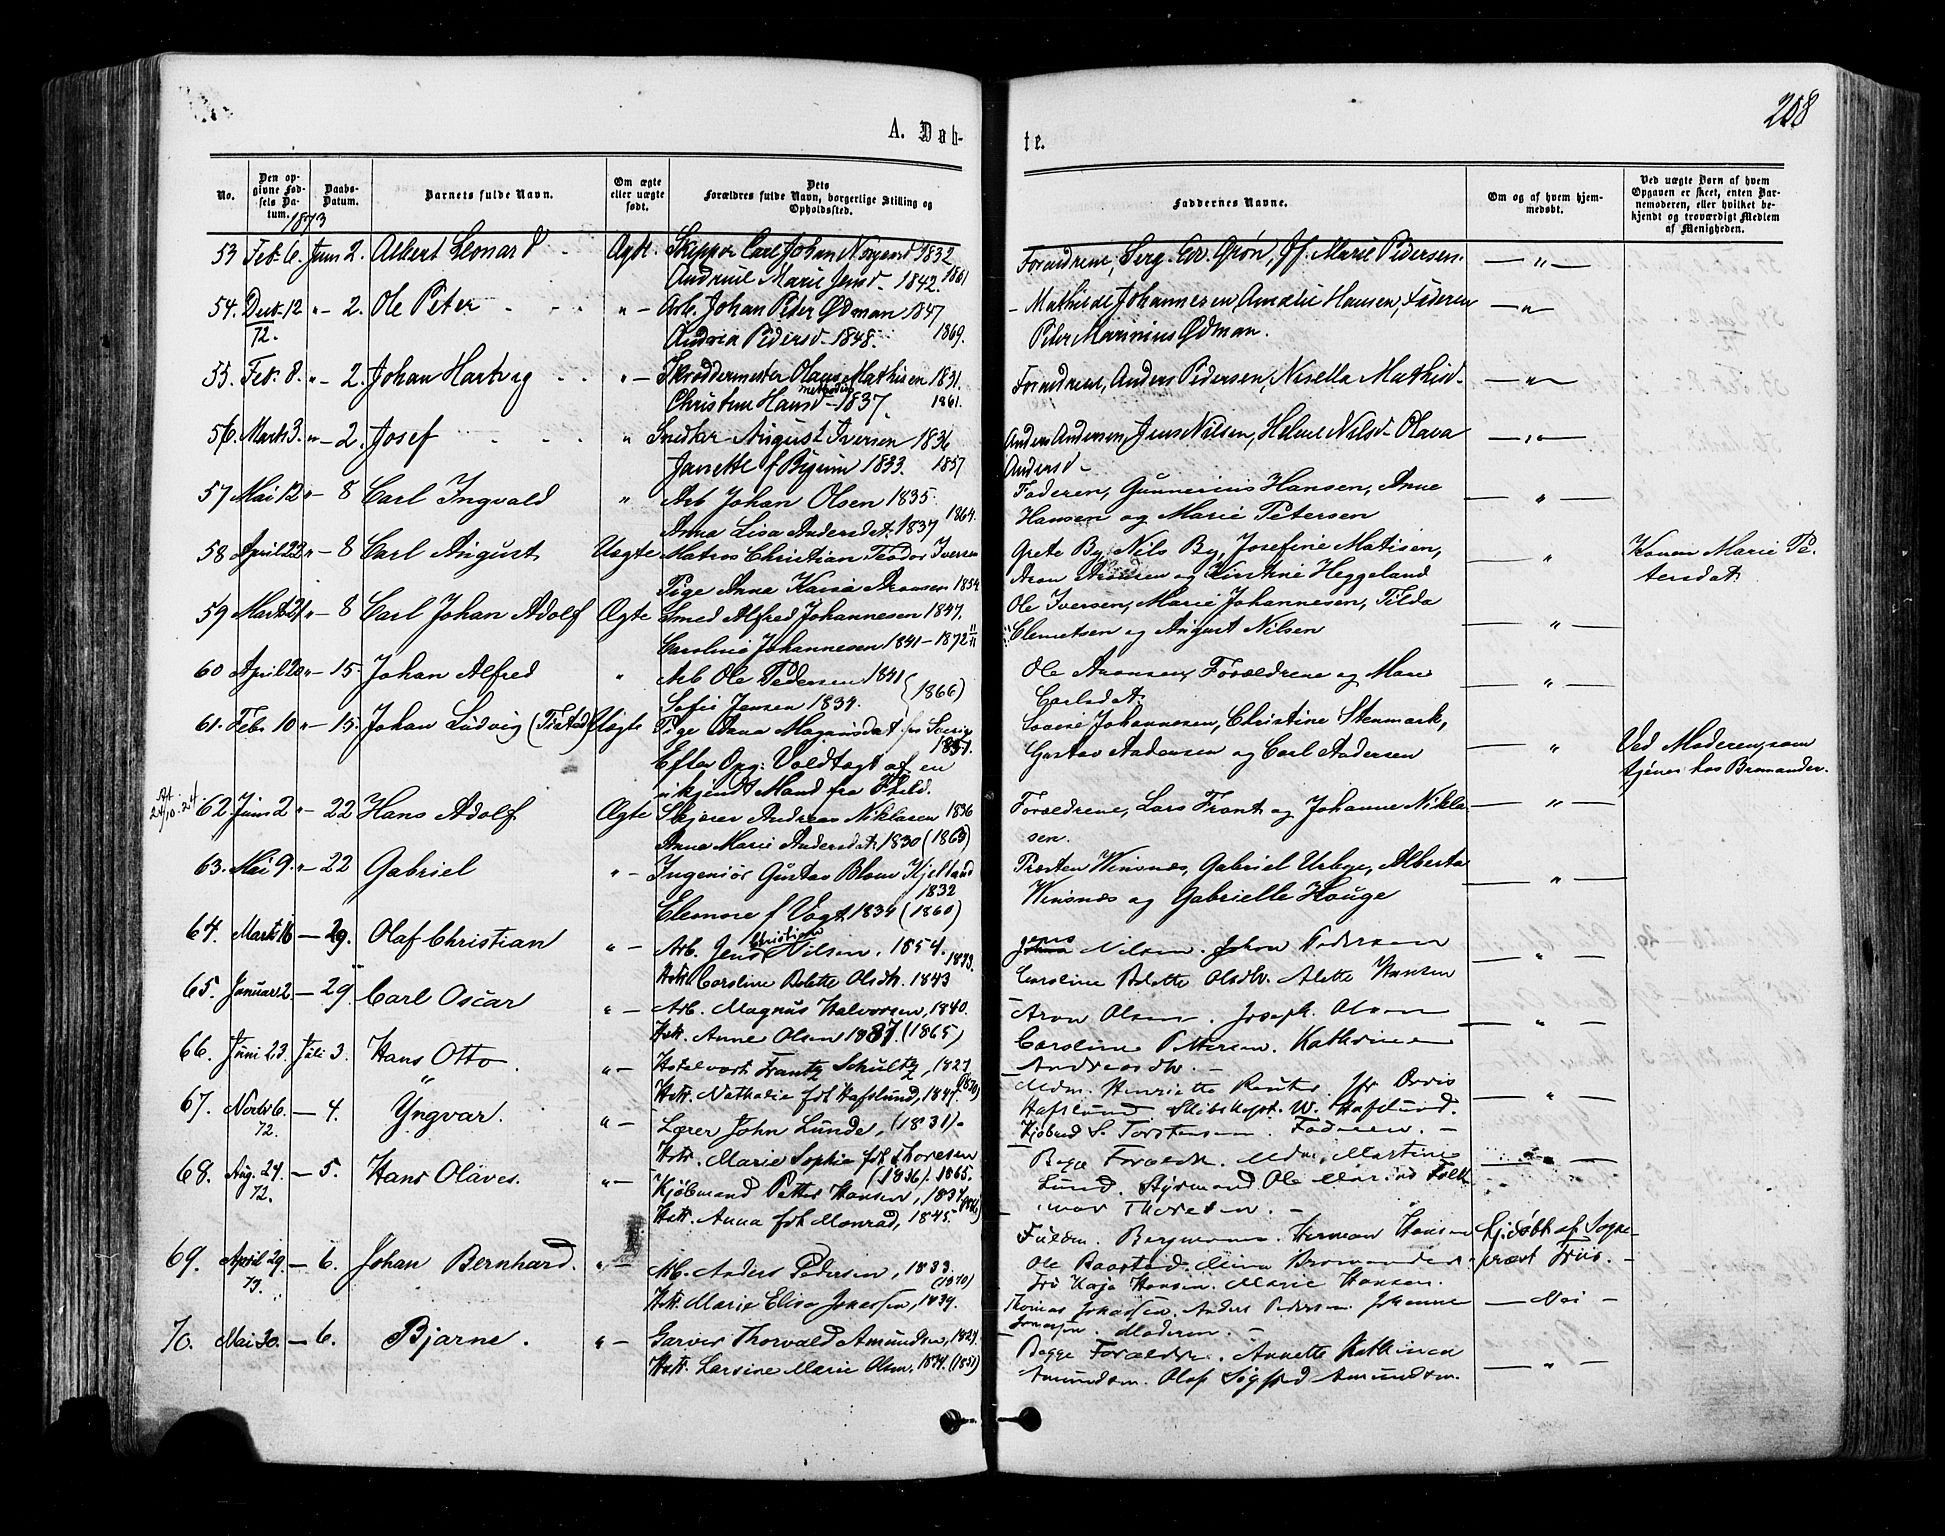 208
A. Døb-
te.
No.
Den opgivne Fødsels Datum.
Daabs-Datum.
Barnets fulde Navn.
Om ægte eller uægte født.
Dets Forældres fulde Navn, borgerlige Stilling og Opholdssted.
Faddernes Navne.
Om og af hvem hjemmedøbt.
Ved uægte Børn af hvem Opgaven er skeet, enten Barnemoderen, eller hvilket bekjendt og troværdigt Medlem af Menigheden.
1873
53 Feb. 6. Juni 2. Albert Leonard Ægte. Skipper Carl Johan 1832
Marie Jensd. 1842. 1861
Forældrene, Marie Pedersen. — " —
54. Decb. 12 " - 2. Ole Peter " — Arb. Johan Peter Ødman 1847
72. Andrea Pedersd. 1848. 1869.
Mathilde Johannesen Amalie Hansen, Faderen — " —
Peter Marinius Ødman.
55. Feb. 8. " - 2. Johan Hartvig " — Skræddermester Olaus Mathisen 1831.
Christine Hansd. 1837. 1861.
Forældrene, Anders Pedersen, Mathisd. — " —
56. Marts 3. " - 2. Josef " August Iversen 1836
1833. 1857
Anders Andersen, Jens Nilsen, Helene Nilsd. Olava — " —
Andersd.
57 Mai 12 " - 8 Carl Ingvald " Arb Johan Olsen 1835.
Anna Lisa Andersdat. 1837 1864.
Faderen, Gunnerius Hansen, Anne — " —
Hansen og Marie Petersen
58 April 22 " - 8 Carl August Uægte Matros Christian Teodor Iversen
Pige Anna Aronsen 1854
Grete By, Nils By, Josefine Matisen, " Konen Marie Pe-
Aron Aronsen og Kirstine Heggeland tersdat.
59 Marts 21 " - 8 Carl Johan Adolf Ægte Smed Alfred Johannesen 1847.
Caroline Johannesen 1841 - 1872
Ole Iversen, Marie Johannesen, Tilda — " —
Clemetsen og August Nilsen
60 April 20 " - 15. Johan Alfred " Arb Ole Pedersen 1841
Sofie Jensen 1834. (1866)
Ole Aronsen, Forældrene og Marie — " —
Carlsdat.
61. Febr 10 " - 15. Johan Ludvig Uægte Pige Anna Magnusdat fra Sverig
1851.
Efter Opg: Voldtagt af en
ukjendt Mand fra
Lovise Johannesen, Christine Stenmark, " Ved Moderen, som
Gustav Andersen og Carl Andersen tjener hos Bromander.
62. Juni 2 " - 22 Hans Adolf Ægte Andreas Niklasen 1836
Anna Marie Andersdat. 1830 (1863)
Forældrene, Lars Frant og Johanne Nikla- — " —
sen.
63. Mai 9. " - 22 Gabriel " — Ingeniør Gustav Blom Kjelland
1832
Eleonore f Vogt 1834 (1860)
Præsten Winsnæs, Gabriel Urbye, Alberta — " —
Winsnæs og Gabrielle Houge
64. Marts 16 — 29. Olaf Christian " — Arb. Jens Christian Nilsen, 1854.
Hstr. Caroline Bolette Olsdtr. 1843 1873.
Jens Nilsen. Johan Pedersen — " —
Caroline Bolette Olsdtr. Alette Hansen
65. Januar 2 — 29 Carl Oscar " — Arb. Magnus Halvorsen, 1840.
Hstr. Anne Olsen 1837. (1865)
Aron Olsen. Joseph Olsen — " —
Caroline Pettersen. Kathrine
Andreasdtr. —
66. Juni 23. Juli 3. Hans Otto " — Hotelvært Frantz Schultz, 1827
Hstr. Nathalie fdt Hafslund, 1847. (1870)
Mdm. Henriette Reuter. Jfr — " —
Hafslund. Skibskapt. W. Hafslund.
Kjøbmd S. Torstensen. Faderen. —
67. Novbr 6. — 4. Yngvar. " — Lærer John Lunde, (1831) -
72. Hstr. Marie Sophie fdt Thoresen
(1836). 1865.
Begge Forældre. Mdm. Martine — " —
Lund. Ole
Thoresen. —
68. Aug. 24. — 5. Hans Olaves. " — Kjøbmand Petter Hansen, 1837
72. Hstr. Anna fdt Monrad, 1845.
Faderen. Bergmann. Herman Hansen Hj. døbt af Sogne-
Ole Baastad. Mina Bromander præst Friis. —
Fru Kaja Hansen. Marie Hansen.
69. April 29. — 6. Johan Bernhard. " — Arb. Anders Pedersen, 1833.
73. (1870)
Hstr. Marie Elisa Jonassen, 1839.
Thomas Jonassen. Anders Pedersen. Johanne — Nei —
Jonassen. Moderen. —
70. Mai 30. — 6. Bjarne. " — Garver Thorvald Amundsen, 1827.
Hstr. Larsine Marie Olsen, 1834. (1851)
Begge Forældre. Annette Kathinca — " —
Amundsen. Olaf Sigfred Amundsen.